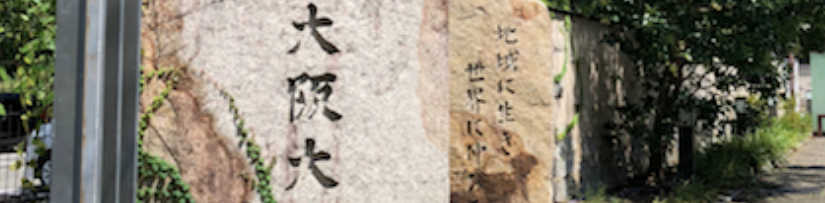 大阪大
地域に生き
世界に